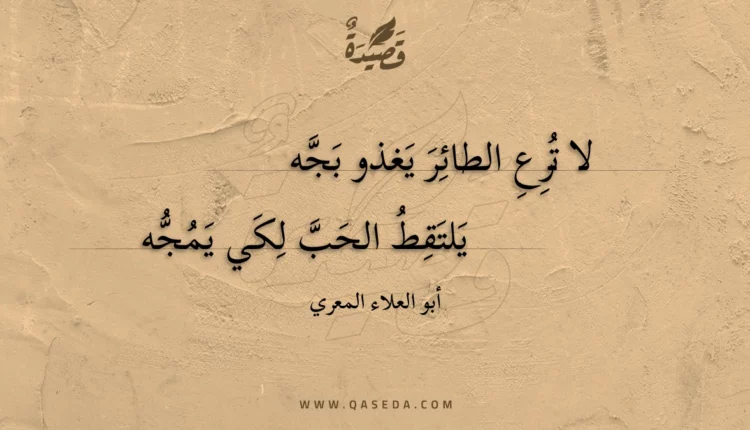 قَصِيدَةٌ
لا تُرِعِ الطائِرَ يَغذو بَجَّه
يَلتَقِطُ الحَبَّ لِكَي يَمُجُّه
أبو العلاء المعري
WWW.QASEDA.COM